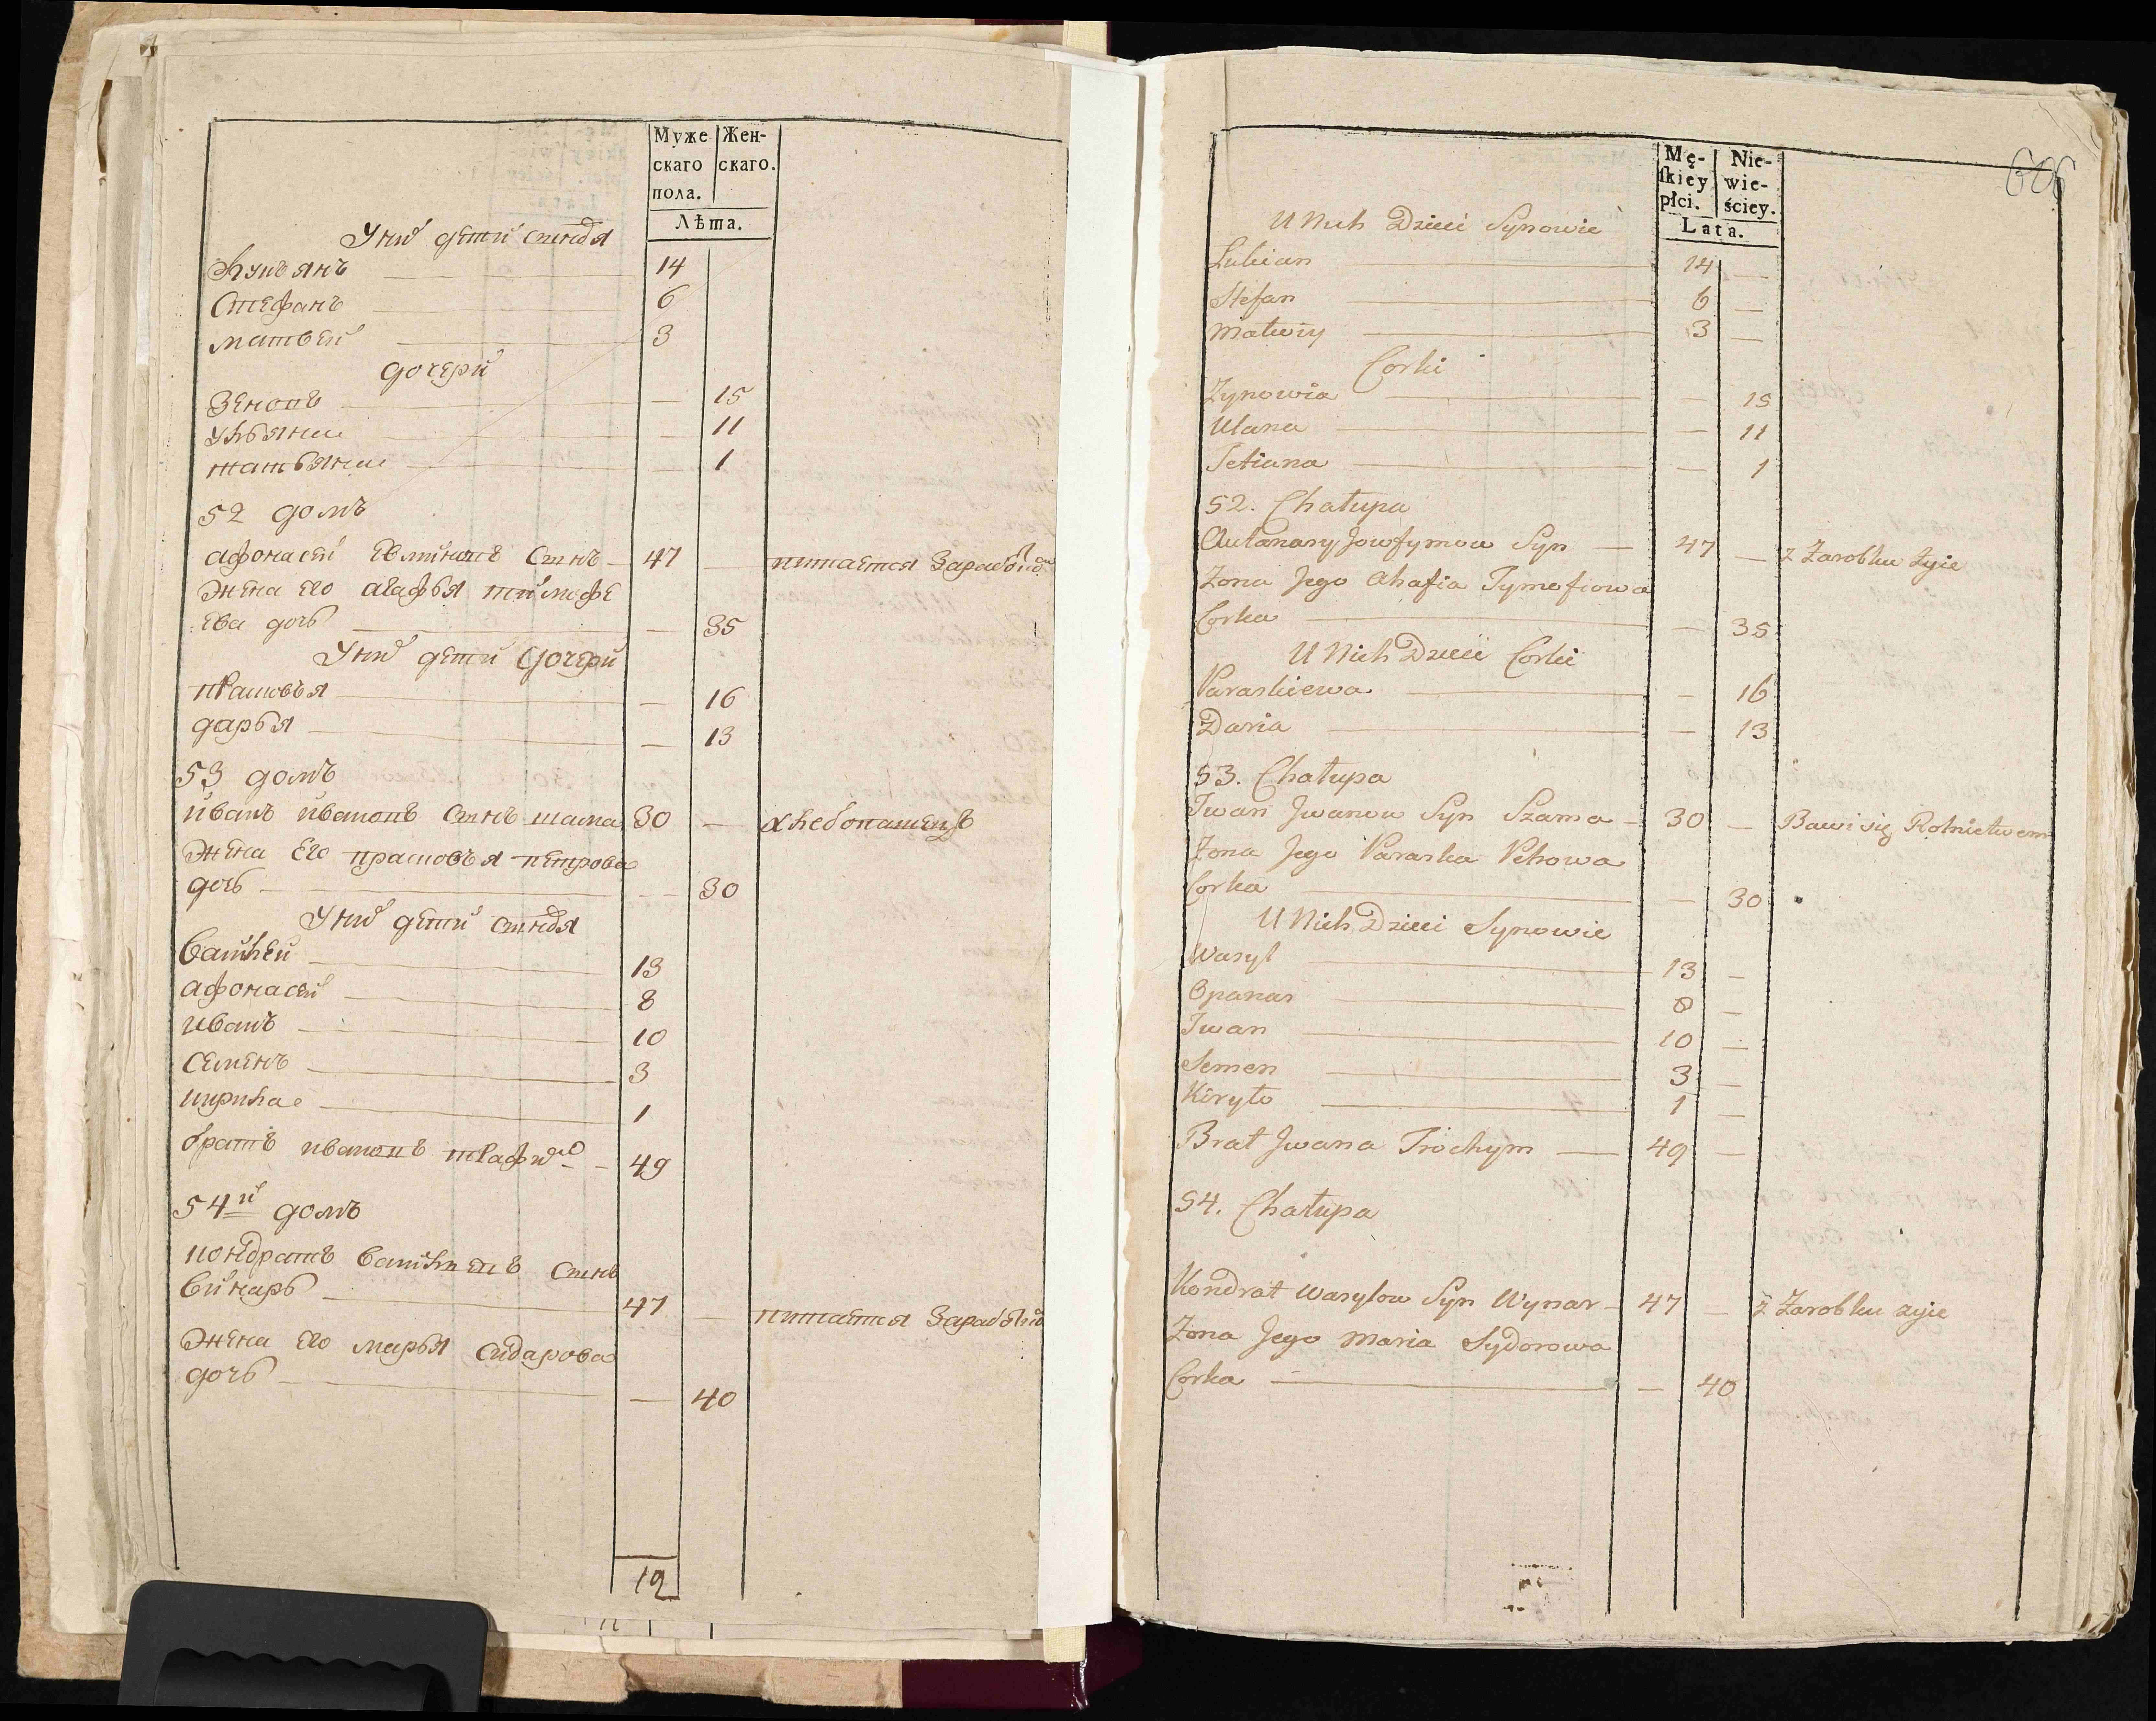 Муже Жен-
скаго скаго.
пола.
Лѣта.
У нихъ дети сыновя
Лукьянъ 14
Стефанъ 6
матвей 3
дочери
Зеновъ — 15
Ульяни — 11
татьяни — 1
52 домъ
афонасей Евтиховъ Сынъ — 47 — питается Заработко
жена его агафья тимофе
ева дочь — 35
У нихъ дети дочери
прасковья — 16
дарья — 13
53 домъ
иванъ ивановъ Сынъ шама 30 — хлебопашецъ
жена Его прасковья петрова
дочь — 30
У нихъ дети сыновя
василей 13
афонасей 8
иванъ 10
Семенъ 3
кирила 1
братъ ивановъ трафимъ — 49
54й домъ
кондратъ васильевъ Сынъ
винарь 47 — питается Заработко
жена Его марья сидарова
дочь — 40
12
606
Mę- Nie-
skiey wie-
płci. ściey.
Lata.
U Nich Dzieci Synowie
Lukian 14 —
Stefan 6 —
Matwiy 3 —
Corki
Zynowia — 15
Ulana — 11
Tetiana — 1
52. Chałupa
Autanasy Jowfymow Syn — 47 — z Zarobku żyie
Zona Jego Ahafia Tymofiowa
Corka — 35
U Nich Dzieci Corki
Paraskiewa — 16
Daria — 13
53. Chałupa
Iwan Jwanow Syn Szama — 30 — Bawi się Rolnictwem
Zona Jego Paraska Petrowa
Corka — 30
U Nich Dzieci Synowie
Wasyl 13 —
Opanas 8 —
Iwan 10 —
Semen 3 —
Kiryło 1 —
Brat Jwana Trochym — 49 —
54. Chałupa
Kondrat Wasylow Syn Wynar — 47 — z Zarobku żyie
Zona Jego Maria Sydorowa
Corka — 40